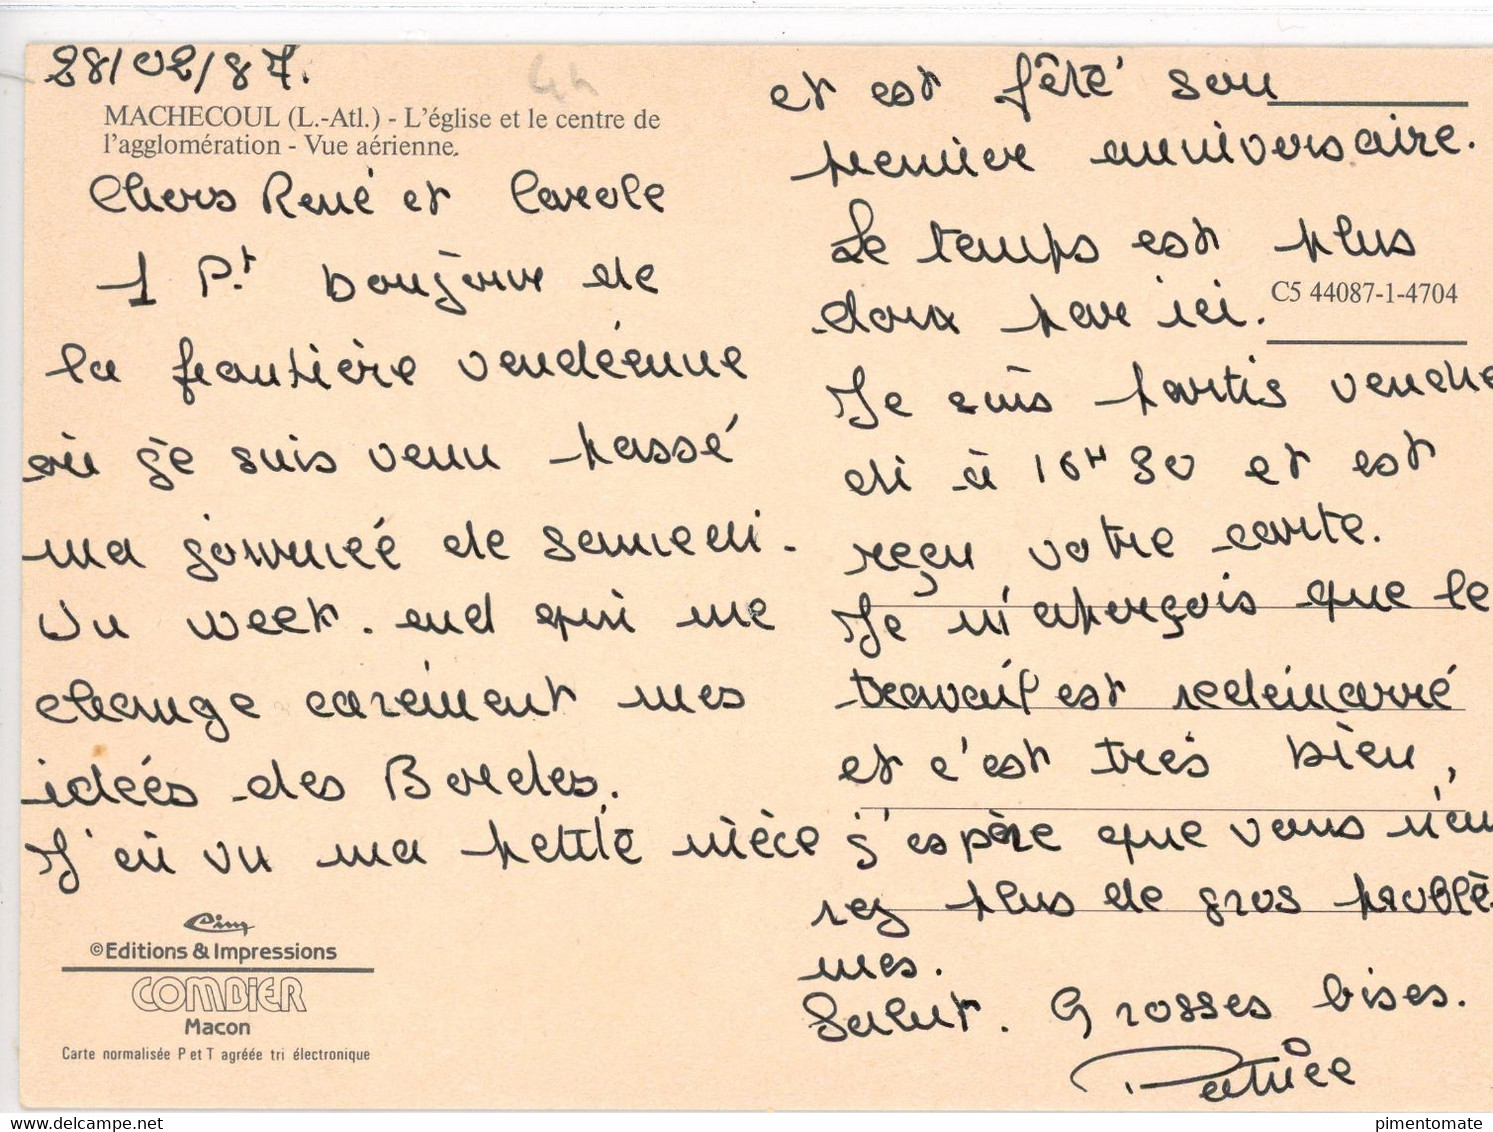 28/02/87.
4h
MACHECOUL (L.-Atl.) - L'église et le centre de
l'agglomération - Vue aérienne.
Chers René et Carole
1 P.t bonjour de
la frontière vendéenne
où je suis venu passé
ma journeé de samedi.
Un week-end qui me
change carément mes
idées des Bordes.
J'ai vu ma petite nièce
Cim
©Editions & Impressions
COMBIER
Macon
Carte normalisée P et T agréée tri électronique
et est fêté son
premier anniversaire.
Le temps est plus
doux par ici.
C5 44087-1-4704
Je suis partis vendre
di à 16H30 et est
reçu votre carte.
Je m'aperçois que le
travail est redémarré
et c'est très bien,
j'espère que vous n'au
rez plus de gros problè
mes.
Salut. Grosses bises.
Patrice
pimentomate